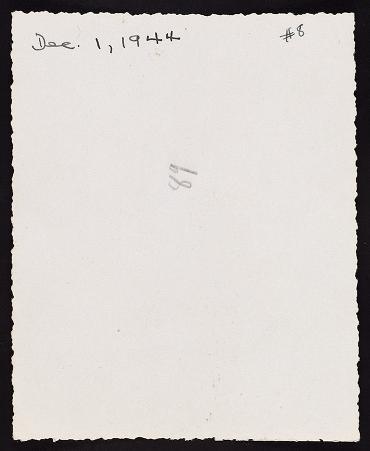 Dec. 1, 1944 #8
89